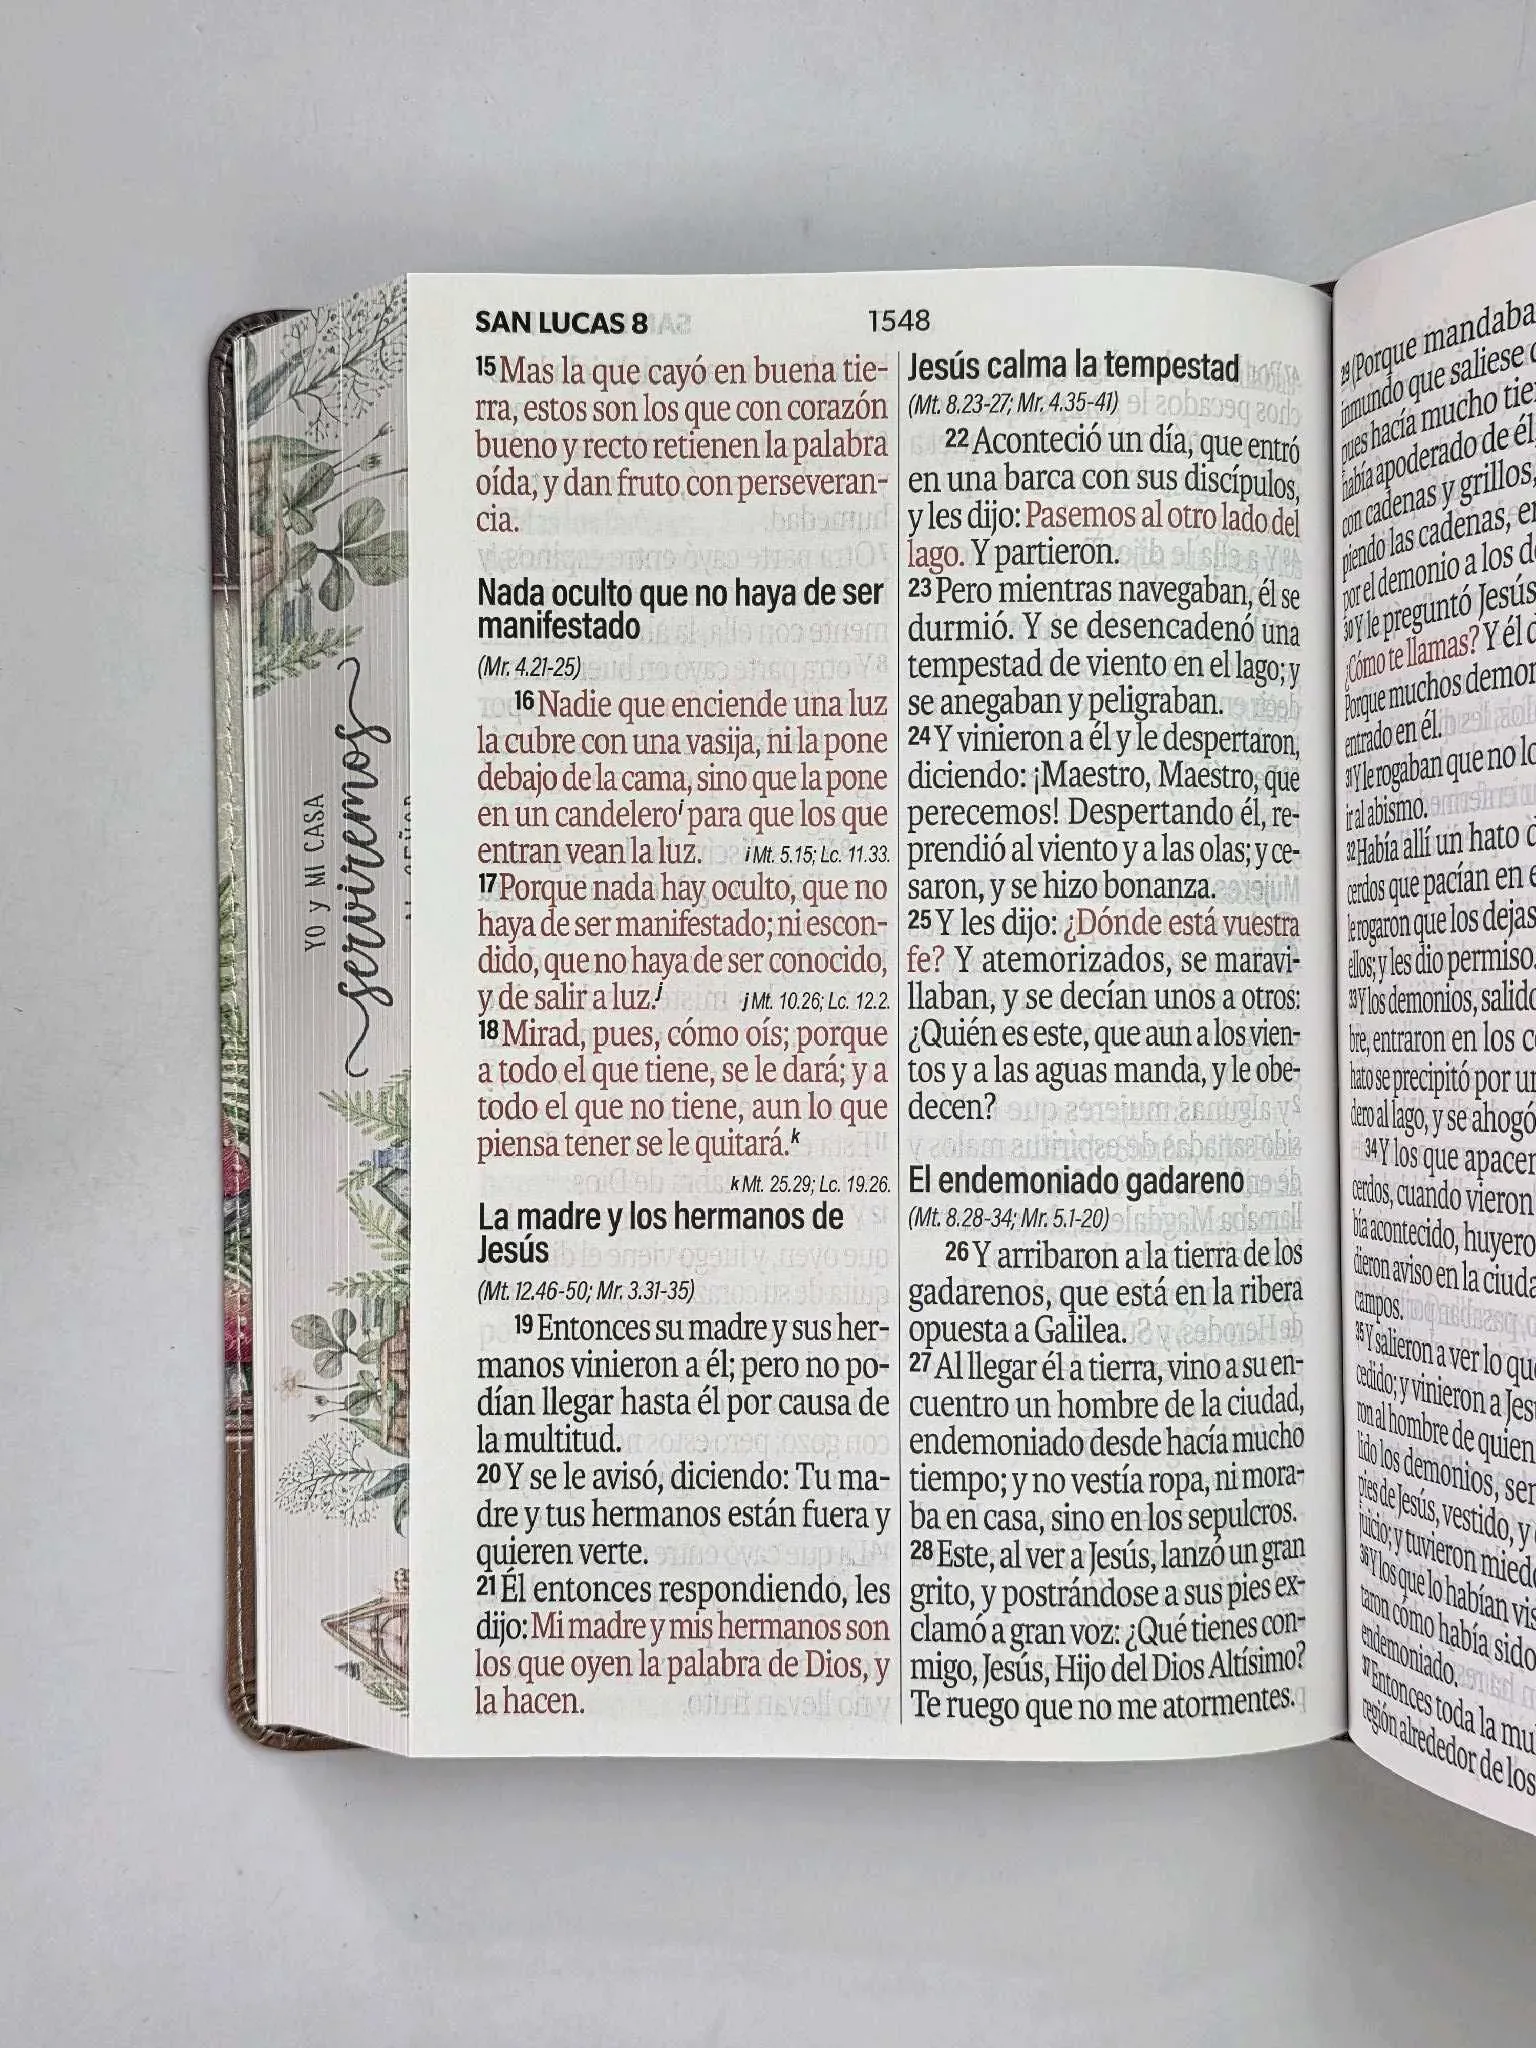 SAN LUCAS 8
1548
15 Mas la que cayó en buena tie-
rra, estos son los que con corazón
bueno y recto retienen la palabra
oída, y dan fruto con perseveran-
cia.
Nada oculto que no haya de ser
manifestado
(Mr. 4.21-25)
16 Nadie que enciende una luz
la cubre con una vasija, ni la pone
debajo de la cama, sino que la pone
en un candelero i para que los que
entran vean la luz. i Mt. 5.15; Lc. 11.33.
17 Porque nada hay oculto, que no
haya de ser manifestado; ni escon-
dido, que no haya de ser conocido,
y de salir a luz. j j Mt. 10.26; Lc. 12.2.
18 Mirad, pues, cómo oís; porque
a todo el que tiene, se le dará; y a
todo el que no tiene, aun lo que
piensa tener se le quitará. k
k Mt. 25.29; Lc. 19.26.
La madre y los hermanos de
Jesús
(Mt. 12.46-50; Mr. 3.31-35)
19 Entonces su madre y sus her-
manos vinieron a él; pero no po-
dían llegar hasta él por causa de
la multitud.
20 Y se le avisó, diciendo: Tu ma-
dre y tus hermanos están fuera y
quieren verte.
21 Él entonces respondiendo, les
dijo: Mi madre y mis hermanos son
los que oyen la palabra de Dios, y
la hacen.
Jesús calma la tempestad
(Mt. 8.23-27; Mr. 4.35-41)
22 Aconteció un día, que entró
en una barca con sus discípulos,
y les dijo: Pasemos al otro lado del
lago. Y partieron.
23 Pero mientras navegaban, él se
durmió. Y se desencadenó una
tempestad de viento en el lago; y
se anegaban y peligraban.
24 Y vinieron a él y le despertaron,
diciendo: ¡Maestro, Maestro, que
perecemos! Despertando él, re-
prendió al viento y a las olas; y ce-
saron, y se hizo bonanza.
25 Y les dijo: ¿Dónde está vuestra
fe? Y atemorizados, se maravi-
llaban, y se decían unos a otros:
¿Quién es este, que aun a los vien-
tos y a las aguas manda, y le obe-
decen?
El endemoniado gadareno
(Mt. 8.28-34; Mr. 5.1-20)
26 Y arribaron a la tierra de los
gadarenos, que está en la ribera
opuesta a Galilea.
27 Al llegar él a tierra, vino a su en-
cuentro un hombre de la ciudad,
endemoniado desde hacía mucho
tiempo; y no vestía ropa, ni mora-
ba en casa, sino en los sepulcros.
28 Este, al ver a Jesús, lanzó un gran
grito, y postrándose a sus pies ex-
clamó a gran voz: ¿Qué tienes con-
migo, Jesús, Hijo del Dios Altísimo?
Te ruego que no me atormentes.
29 (Porque mandaba
inmundo que saliese
pues hacía mucho
había apoderado de él
con cadenas y grillos,
piendo las cadenas,
por el demonio a los
30 Y le preguntó Jesús
¿Cómo te llamas? Y él
Porque muchos
entrado en él.
31 Y le rogaban que no
ir al abismo.
32 Había allí un hato
cerdos que pacían en
le rogaron que los dejas
ellos; y les dio permiso.
33 Y los demonios,
bre, entraron en los
hato se precipitó por
dero al lago, y se ahogó
34 Y los que
cerdos, cuando vieron
bía acontecido, huyero
dieron aviso en la
campos.
35 Y salieron a ver lo
cedido; y vinieron a
ron al hombre de quien
lido los demonios,
pies de Jesús, vestido, y
juicio; y tuvieron
36 Y los que lo habían
taron cómo había sido
endemoniado.
37 Entonces toda la
región alrededor de los
YO y MI CASA
serviremos